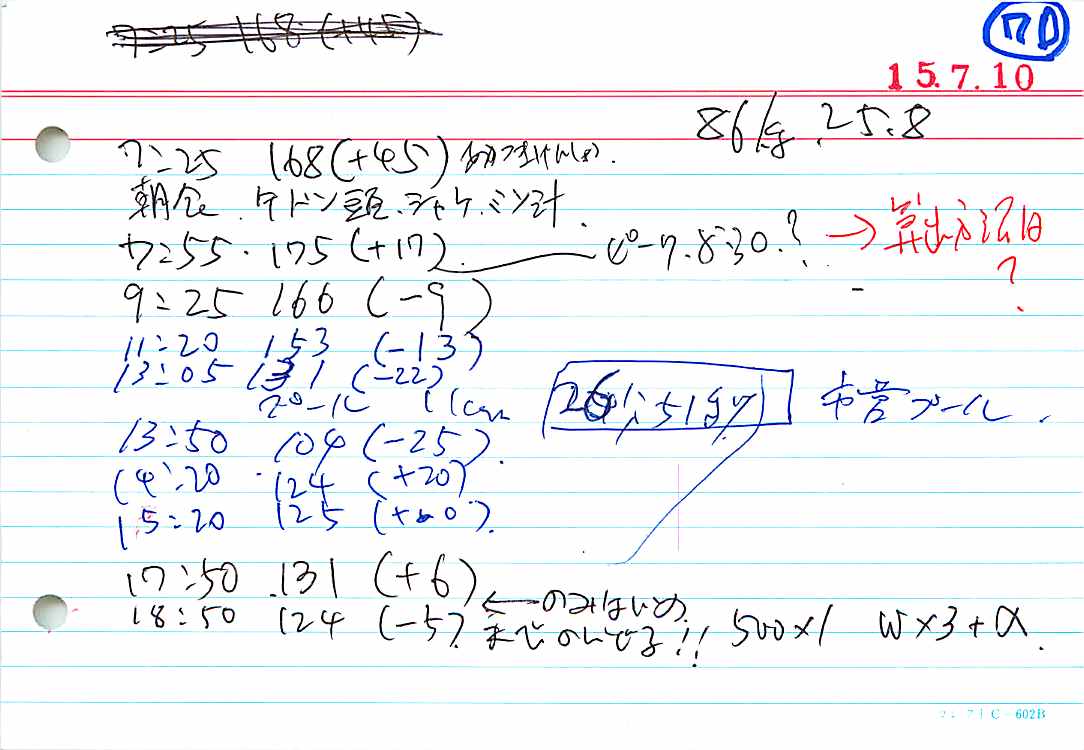 7:25 168 (+45)
17D
15.7.10
86kg. 25.8
7:25 168(+45)
朝食. ケトン 頭. シャケ. ミン汁.
7:55. 175 (+17) ピーク. 8:30.? → 算出方法は
?
9:25 166 (-9)
11:20 153 (-13)
13:05 131 (-22)
プール 26分51秒 市営プール.
13:50 104 (-25).
14:20 124 (+20)
15:20 125 (+0).
17:50 131 (+6)
18:50 124 (-5) ← のみはじめ
までのんでる!! 500×1 W×3+α.
C-602B